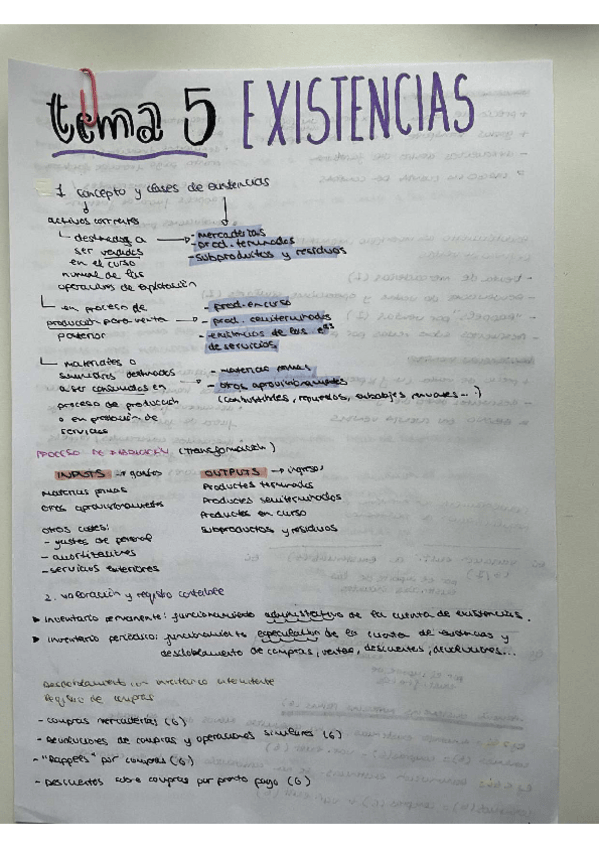 tema 5 EXISTENCIAS
1. concepto y clases de existencias
activos corrientes
destinados a
ser vendidos
en el curso
normal de las
operaciones de explotación
- mercaderías
- prod. terminados
- subproductos y residuos
en proceso de
producción para venta
posterior
- prod. en curso
- prod. semiterminados
- existencias de las eᵃˢ
de servicios
materiales o
suministros destinados
a ser consumidos en
proceso de producción
o en prestación de
servicios
- materias primas
- otros aprovisionamientos
(combustibles, repuestos, embalajes, envases...)
PROCESO DE FABRICACIÓN (transformación)
INPUTS → gastos
materias primas
otros aprovisionamientos
otros costes:
- gastos de personal
- amortizaciones
- servicios exteriores
OUTPUTS → ingresos
Productos terminados
Productos semiterminados
Productos en curso
Subproductos y residuos
2. valoración y registro contable
▸ inventario permanente: funcionamiento administrativo de la cuenta de existencias.
▸ inventario periódico: funcionamiento especulativo de la cuenta de existencias y
desdoblamiento de compras, ventas, descuentos, devoluciones...
Desdoblamiento con inventario intermitente
Registro de compras
- compras mercaderías (G)
- Devoluciones de compras y operaciones similares (G)
- "Rappels" por compras (G)
- Descuentos sobre compras por pronto pago (G)